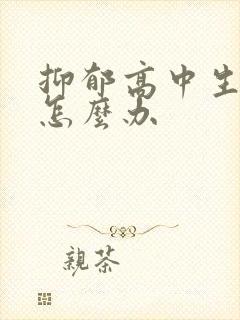 抑郁高中生
怎麼办
親茶